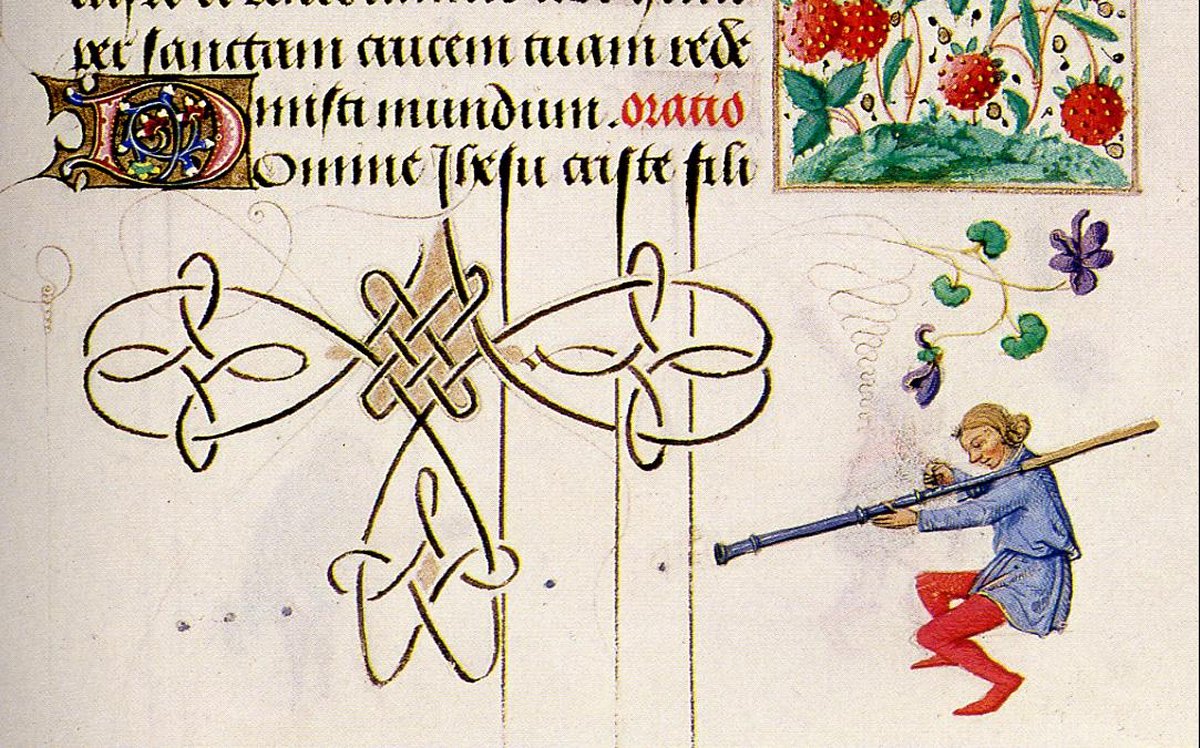 per sanctam crucem tuam rede
misti mundum. oratio
DOmine Jhesu criste fili